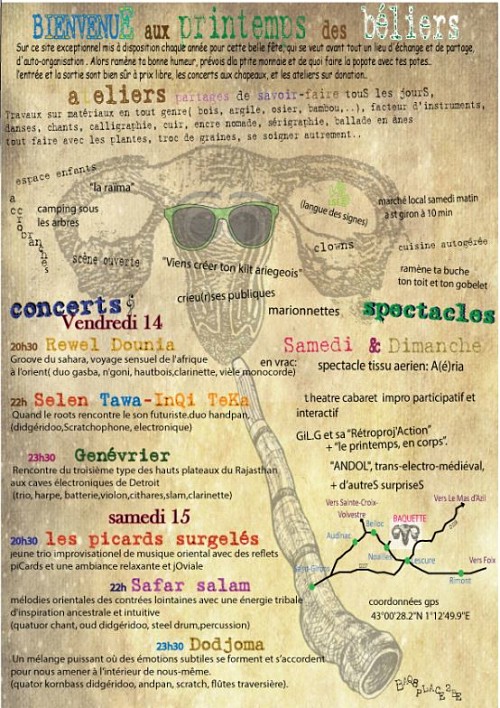 BIENVENUE aux printemps des béliers
Sur ce site exceptionnel mis à disposition chaque année pour cette belle fête, qui se veut avant tout un lieu d'échange et de partage,
d'auto-organisation . Alors ramène ta bonne humeur, prévois dla ptite monnaie et de quoi faire la popote avec tes potes..
l'entrée et la sortie sont bien sûr à prix libre, les concerts aux chapeaux, et les ateliers sur donation.
ateliers partages de savoir-faire touS les jourS,
Travaux sur matériaux en tout genre( bois, argile, osier, bambou,..), facteur d'instruments,
danses, chants, calligraphie, cuir, encre nomade, sérigraphie, ballade en ânes
tout faire avec les plantes, troc de graines, se soigner autrement..
espace enfants
"la raïma"
accrobranches
camping sous
les arbres
scène ouverte
(langue des signes)
marché local samedi matin
a st giron à 10 min
clowns
cuisine autogérée
"Viens créer ton kiit ariegeois"
ramène ta buche
ton toit et ton gobelet
crieu(r)ses publiques
marionnettes
concerts &
spectacles
Vendredi 14
20h30 Rewel Dounia
Groove du sahara, voyage sensuel de l'afrique
à l'orient( duo gasba, n'goni, hautbois,clarinette, vièle monocorde)
22h Selen Tawa-InQi TeKa
Quand le roots rencontre le son futuriste.duo handpan,
(didgéridoo,Scratchophone, electronique)
23h30 Genévrier
Rencontre du troisième type des hauts plateaux du Rajasthan
aux caves électroniques de Detroit
(trio, harpe, batterie,violon,cithares,slam,clarinette)
samedi 15
20h30 les picards surgelés
jeune trio improvisationel de musique oriental avec des reflets
piCards et une ambiance relaxante et jOviale
22h Safar salam
mélodies orientales des contrées lointaines avec une énergie tribale
d'inspiration ancestrale et intuitive
(quatuor chant, oud didgéridoo, steel drum,percussion)
23h30 Dodjoma
Un mélange puissant où des émotions subtiles se forment et s'accordent
pour nous amener à l'intérieur de nous-même.
(quator kornbass didgéridoo, andpan, scratch, flûtes traversière).
Samedi & Dimanche
en vrac: spectacle tissu aerien: A(é)ria
theatre cabaret impro participatif et
interactif
GiL.G et sa "Rétroproj'Action"
+ "le printemps, en corps".
"ANDOL", trans-electro-médiéval,
+ d'autreS surpriseS
Vers Sainte-Croix-
Volvestre
Vers Le Mas d'Azil
BAQUETTE
Belloc
Audinac
Noailles
Lescure
Vers Foix
Saint-Girons
Rimont
coordonnées gps
43°00'28.2"N 1°12'49.9"E